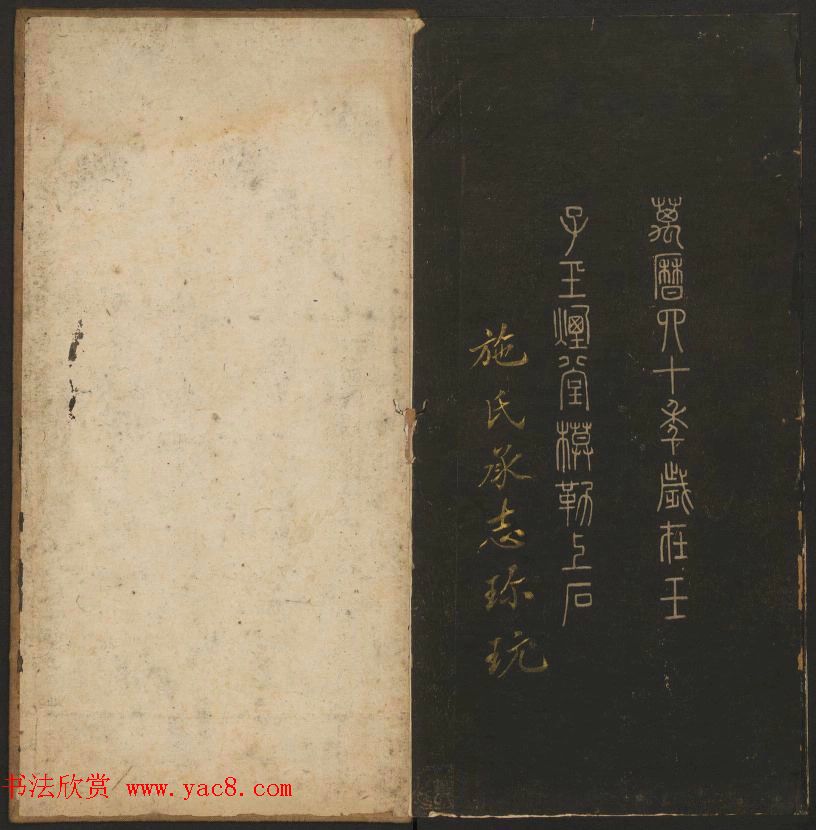 萬曆四十年歲在壬
子玉煙堂模勒上石
施氏承志珎玩
书法欣赏 www.yac8.com